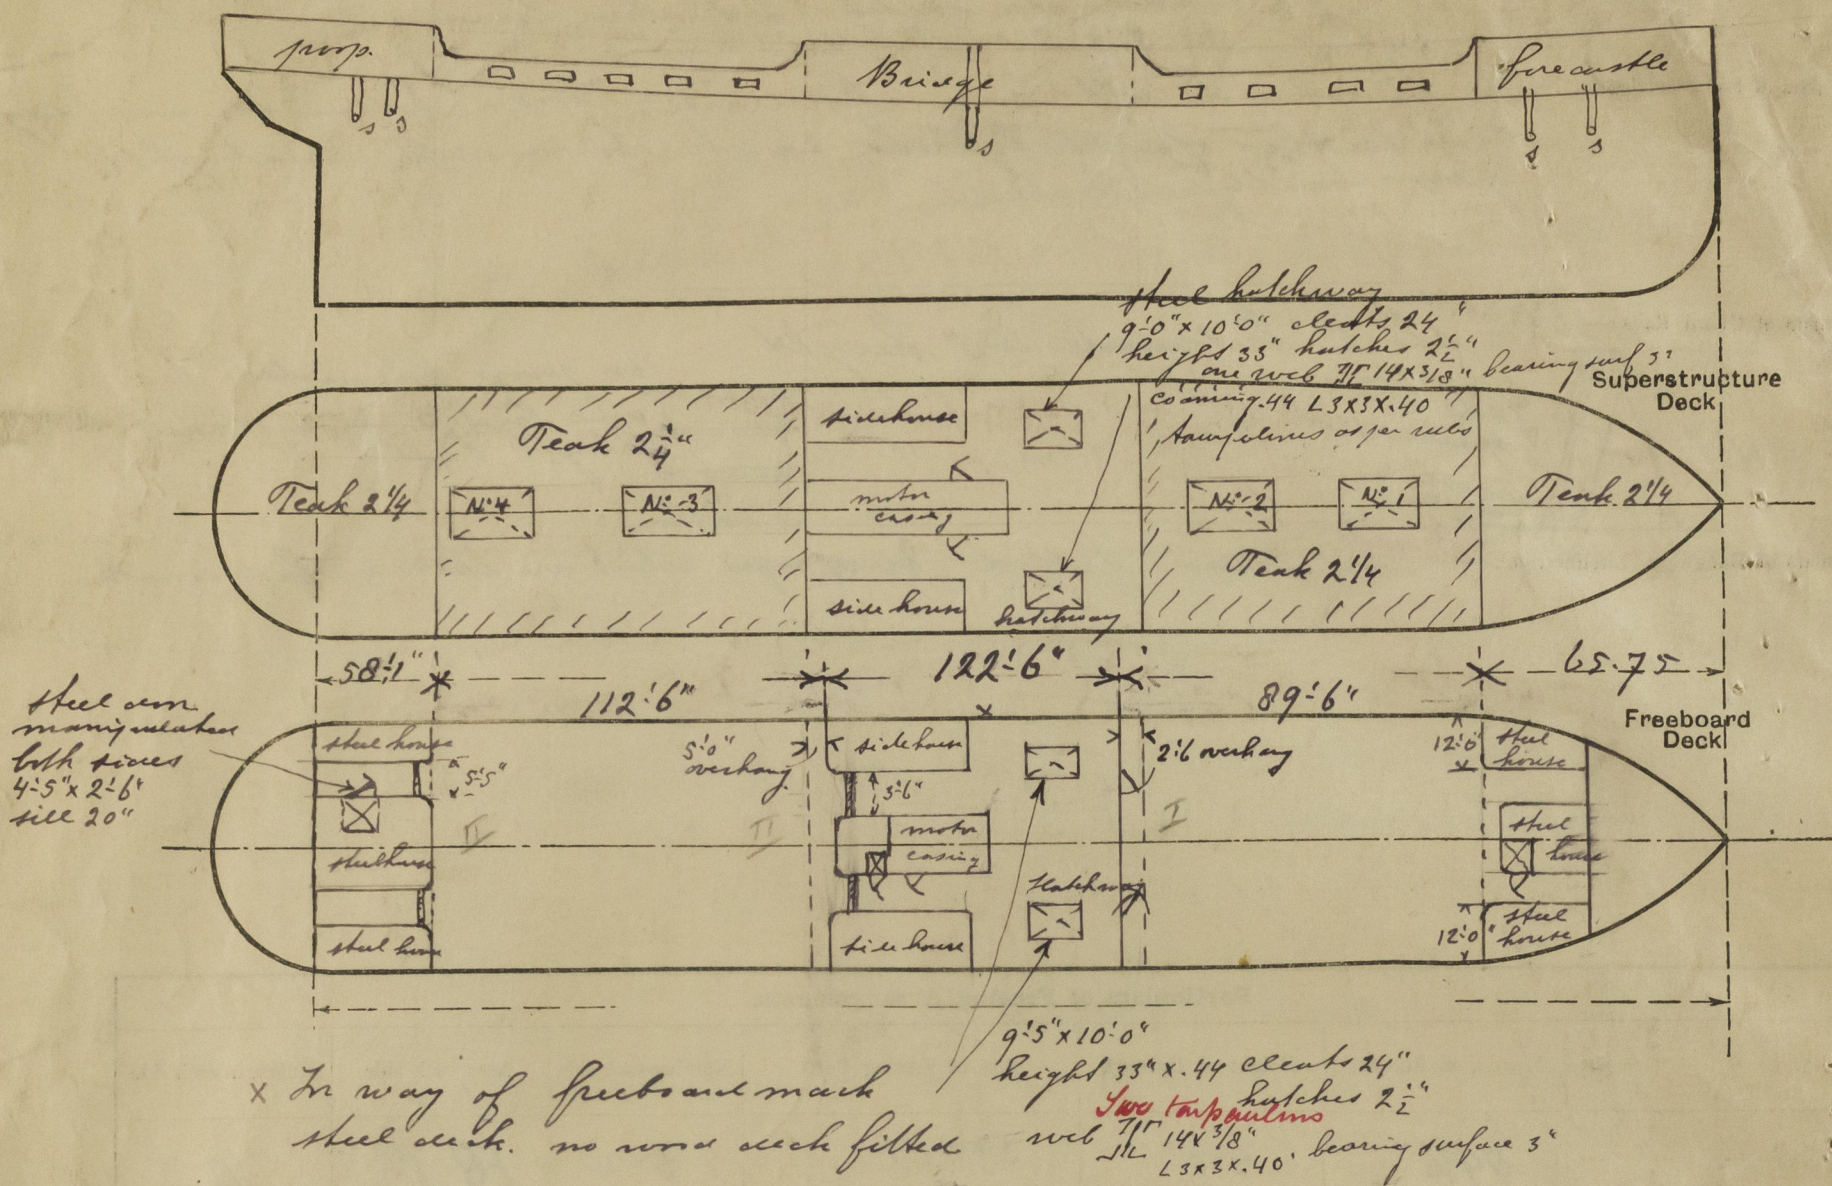 poop.
Bridge
forecastle
s s
s
s s
steel hatchway
9'-0" x 10'-0" cleats 24"
height 33" hatches 2½"
one web 14 x 3/8" bearing surf 3"
coaming .44 L 3x3x.40
as per rules
Superstructure
Deck
Teak 2¼
Teak 2¼"
No 4
No 3
sidehouse
motor
casing
side house
hatchway
No 2
No 1
Teak 2¼
Teak 2¼
58'-1"
112'-6"
122'-6"
89'-6"
65.75
Freeboard
Deck
steel door
both sides
4'-5" x 2'-6"
sill 20"
steel house
5'-5"
II
steelhouse
steel house
5'-0"
overhang
II
sidehouse
3'-6"
motor
casing
side house
x
Hatchway
2'-6 overhang
I
12'-0"
steel
house
steel
house
12'-0"
steel
house
9'-5" x 10'-0"
height 33" x .44 cleats 24"
hatches 2½"
Two tarpaulins
web 14 x 3/8"
L 3x3x.40 bearing surface 3"
x In way of freeboard mark
steel deck. no wood deck fitted